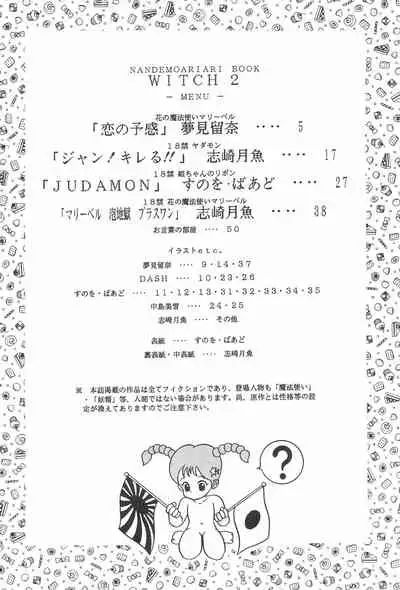 NANDEMOARIARI BOOK
WITCH 2
― MENU ―
花の魔法使いマリーベル
「恋の予感」 夢見留奈 ‥‥ 5
18禁 ヤダモン
「ジャン!キレる!!」 志崎月魚 ‥‥ 17
18禁 姫ちゃんのリボン
「JUDAMON」 すのを・ばあど ‥‥ 27
18禁 花の魔法使いマリーベル
「マリーベル 泡地獄 プラスワン」 志崎月魚 ‥‥ 38
お言葉の部屋 ‥‥ 50
イラストetc.
夢見留奈 ‥‥ 9・14・37
DASH ‥‥ 10・23・26
すのを・ばあど ‥‥ 11・12・13・31・32・33・34・35
中島美雪 ‥‥ 24・25
志崎月魚 ‥‥ その他
表紙 ‥‥ すのを・ばあど
裏表紙・中表紙 ‥‥ 志崎月魚
※ 本誌掲載の作品は全てフィクションであり、登場人物も「魔法使い」
・「妖精」等、人間ではない場合があります。尚、原作とは性格等の設
定が換えてありますのでご注意下さい。
?